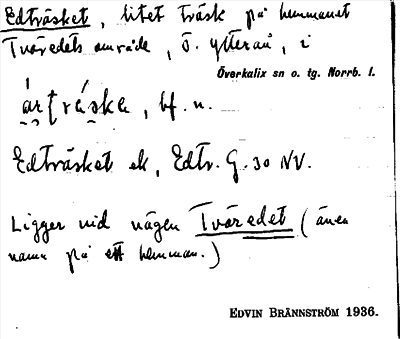 Edträsket, litet träsk på hemmanet
Tväredets område, ö. Ytterån, i
Överkalix sn o. tg. Norrb. l.
bf. n.
Edträsket ek, Edtr. G. 30 NV.
Ligger vid vägen Tväredet (även
namn på ett hemman.)
EDVIN BRÄNNSTRÖM 1936.